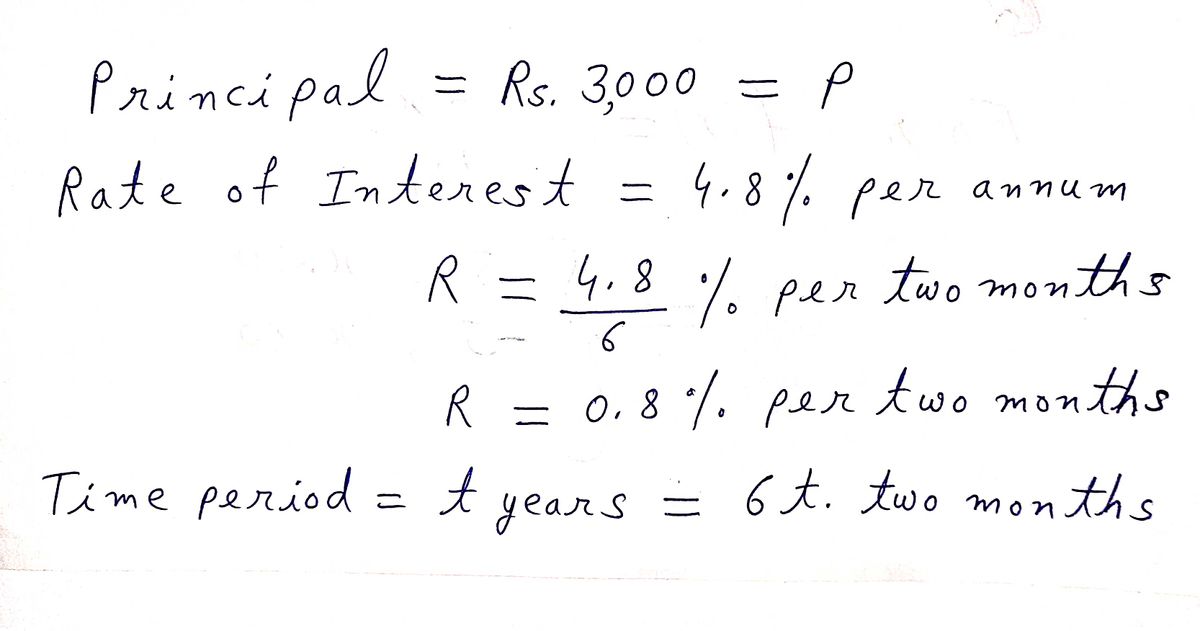 Principal = Rs. 3,000 = P
Rate of Interest = 4.8% per annum
R = 4.8/6 % per two months
R = 0.8% per two months
Time period = t years = 6t. two months